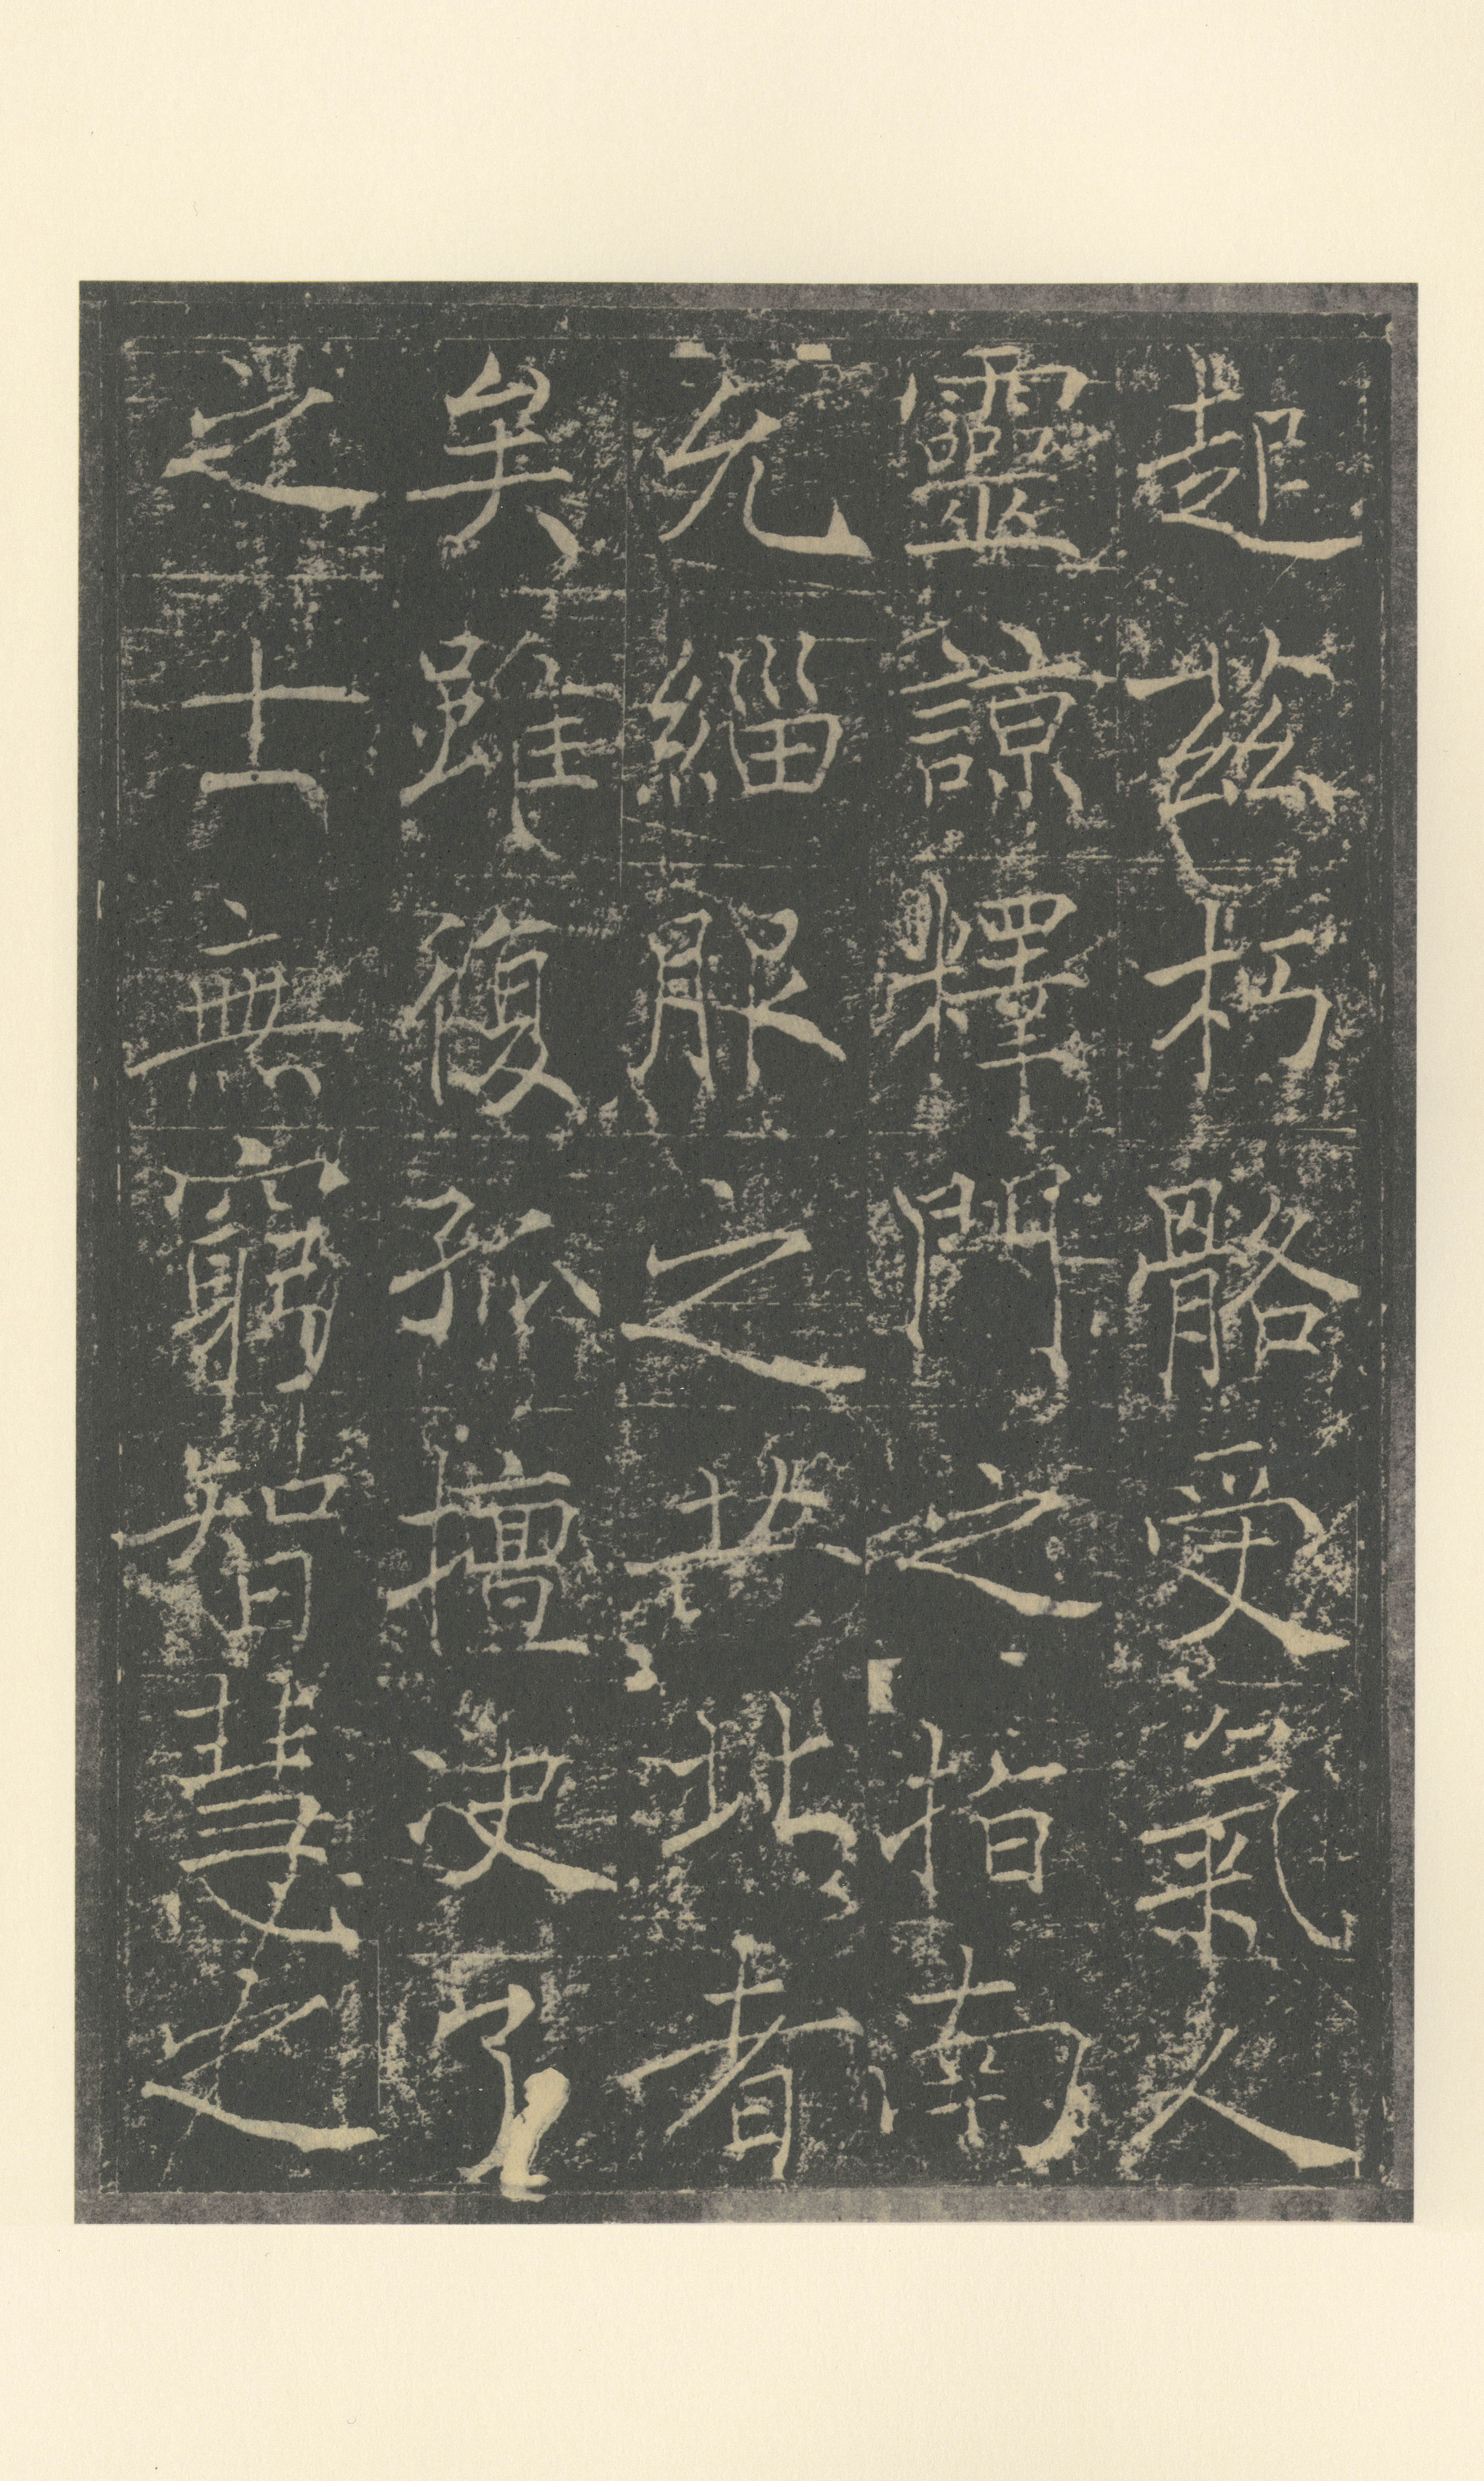 起茲朽骼受氣人
靈諒釋門之指南
允緇服之此者
矣雖復孤擅決了
之士無窮智慧之